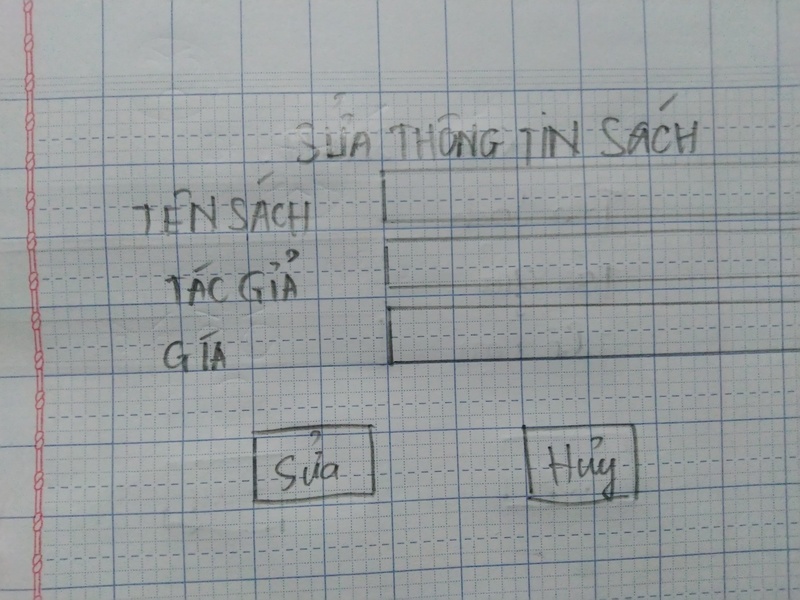 SỬA THÔNG TIN SÁCH
TÊN SÁCH
TÁC GIẢ
GÍA
Sửa
Hủy